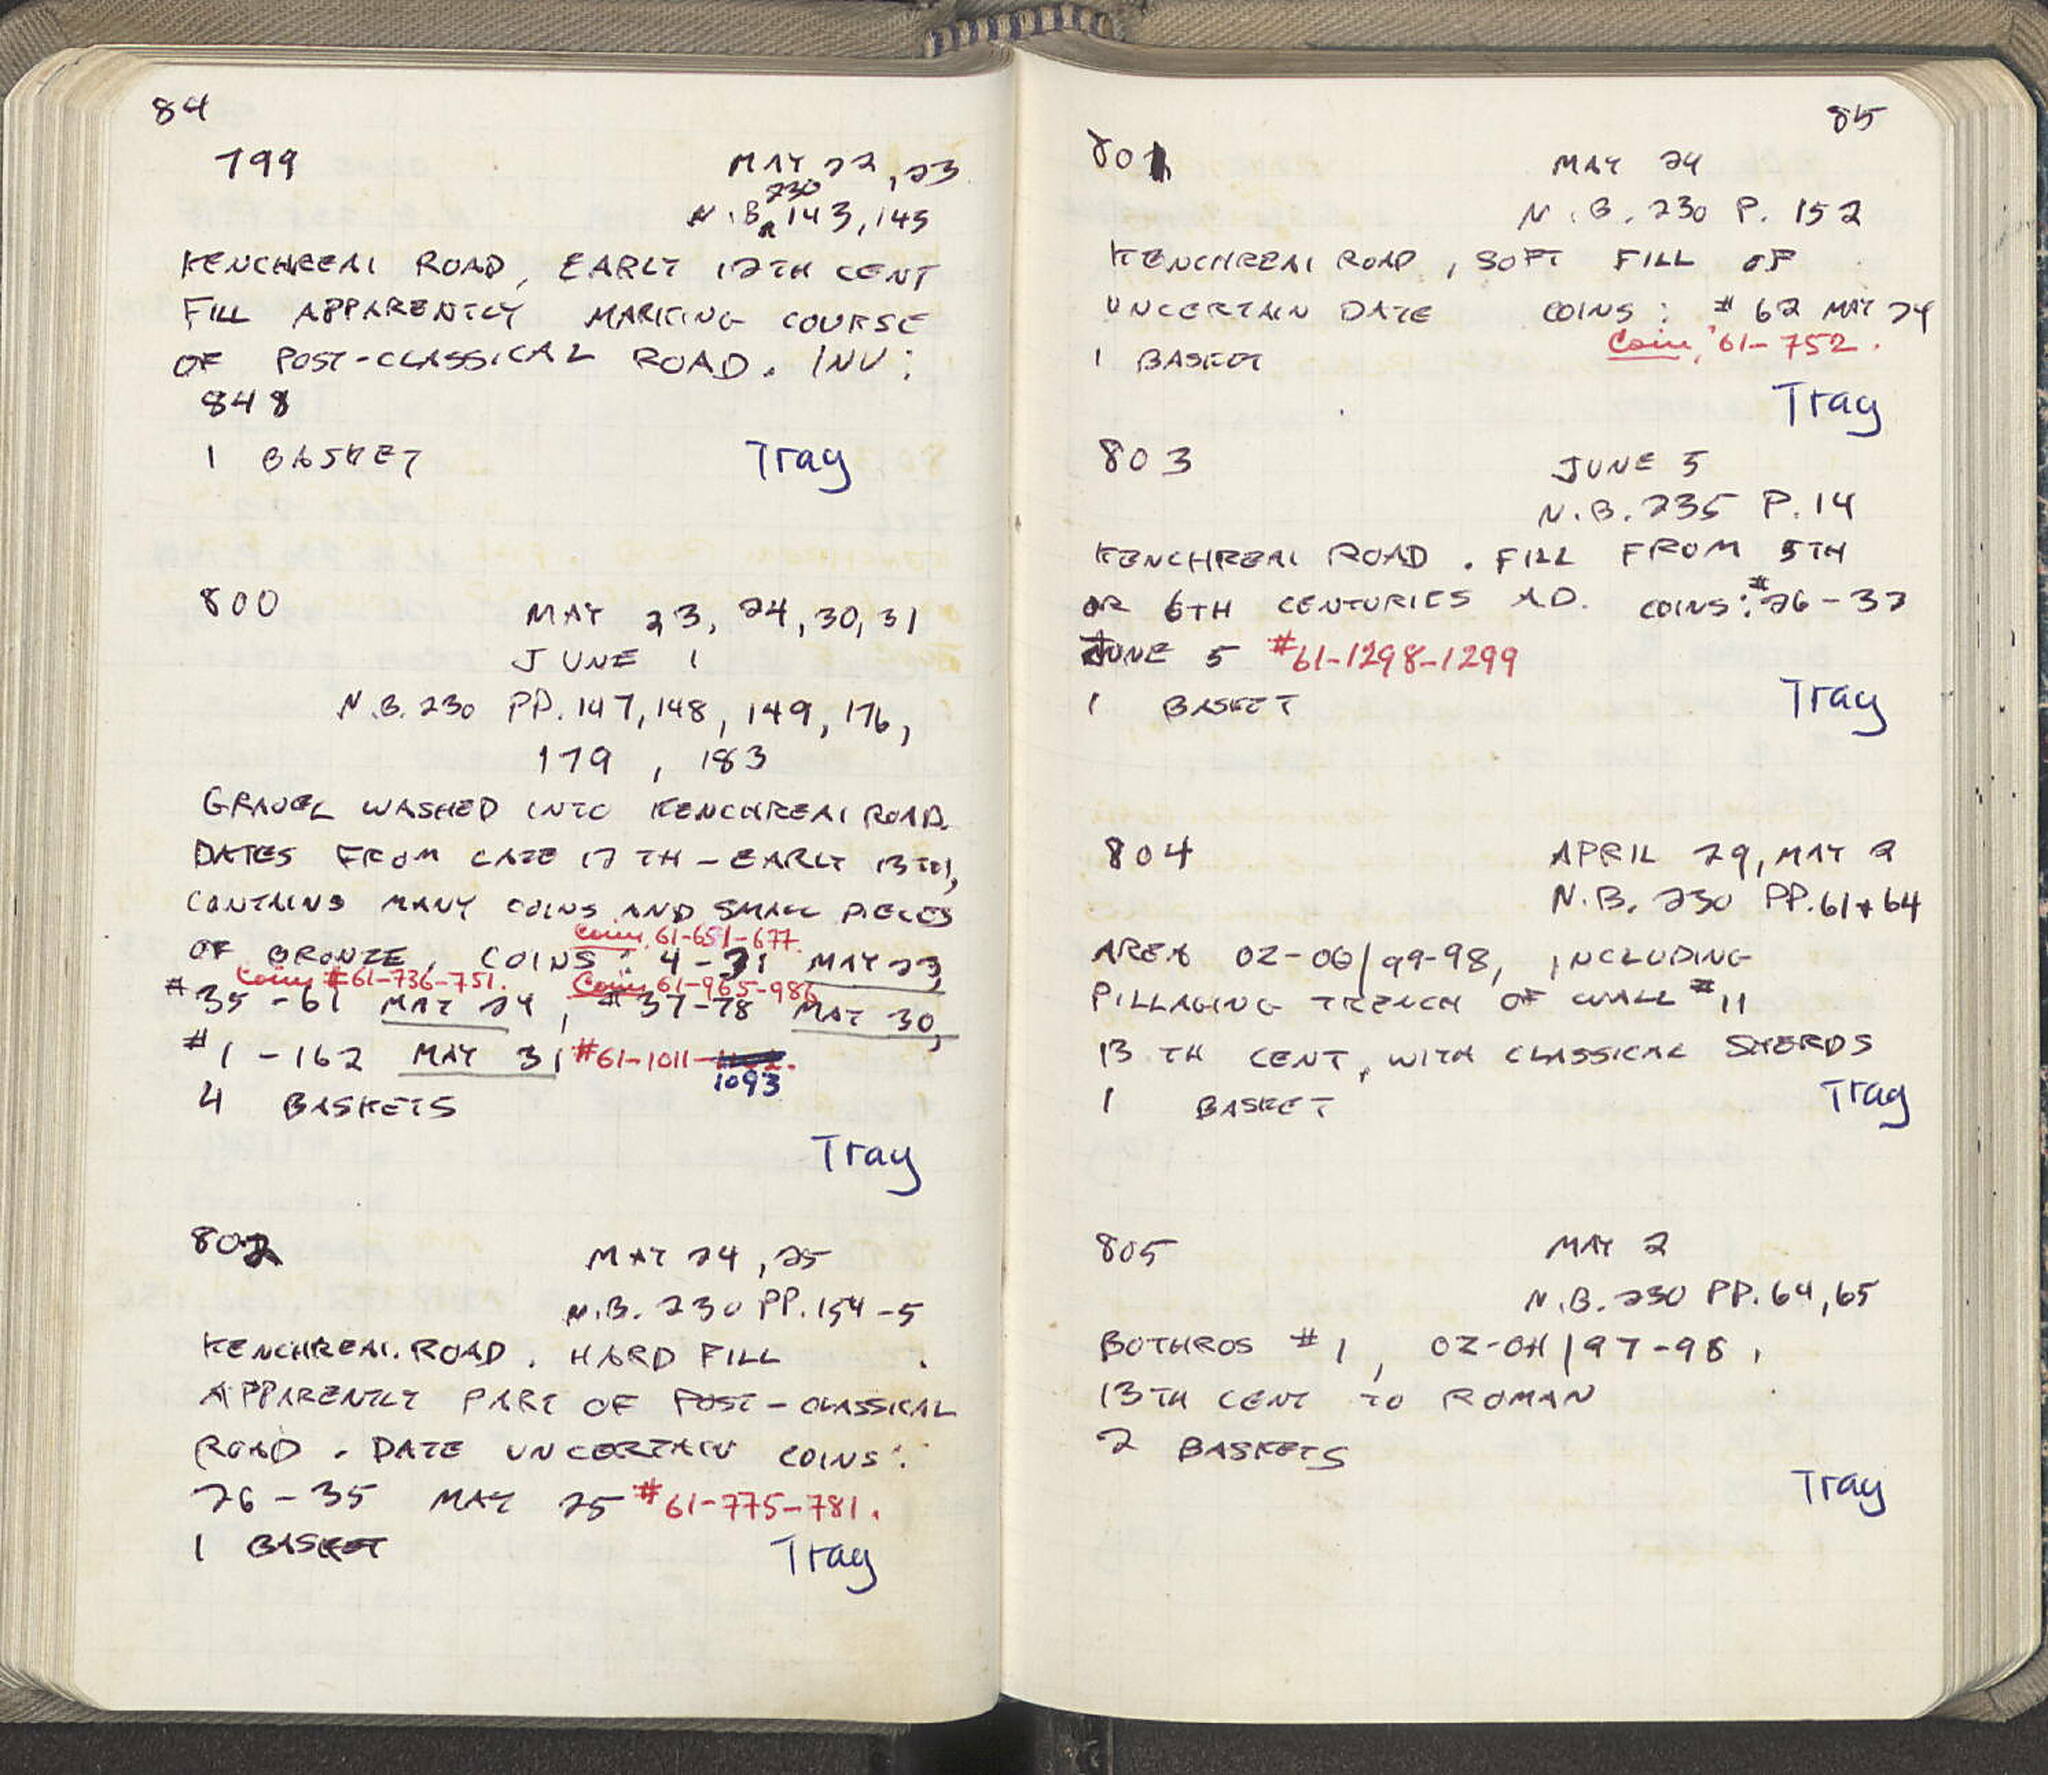 84
799 MAY 22, 23
230
N.B. 143, 145
KENCHREAI ROAD, EARLY 12TH CENT
FILL APPARENTLY MARKING COURSE
OF POST-CLASSICAL ROAD. INV:
848
1 BASKET Tray
800 MAY 23, 24, 30, 31
JUNE 1
N.B. 230 PP. 147, 148, 149, 176,
179, 183
GRAVEL WASHED INTO KENCHREAI ROAD.
DATES FROM LATE 12TH-EARLY 13TH,
CONTAINS MANY COINS AND SMALL PIECES
Coins, 61-651-677.
OF BRONZE. COINS: 4-31 MAY 23,
Coins #61-736-751. Coins 61-965-986
#35-61 MAY 24, #37-78 MAY 30,
#1-162 MAY 31 #61-1011-
1093
4 BASKETS
Tray
802 MAY 24, 25
N.B. 230 PP. 154-5
KENCHREAI ROAD. HARD FILL
APPARENTLY PART OF POST-CLASSICAL
ROAD. DATE UNCERTAIN COINS:
26-35 MAY 25 #61-775-781.
1 BASKET Tray
85
801 MAY 24
N.B. 230 P. 152
KENCHREAI ROAD, SOFT FILL OF
UNCERTAIN DATE COINS: #62 MAY 24
Coin, '61-752.
1 BASKET
Tray
803 JUNE 5
N.B. 235 P. 14
KENCHREAI ROAD. FILL FROM 5TH
OR 6TH CENTURIES AD. COINS: #26-32
JUNE 5 #61-1298-1299
1 BASKET Tray
804 APRIL 29, MAY 2
N.B. 230 PP. 61+64
AREA OZ-OG/99-98, INCLUDING
PILLAGING TRENCH OF WALL #11
13TH CENT, WITH CLASSICAL SHERDS
1 BASKET Tray
805 MAY 2
N.B. 230 PP. 64, 65
BOTHROS #1, OZ-OH/97-98,
13TH CENT TO ROMAN
2 BASKETS
Tray